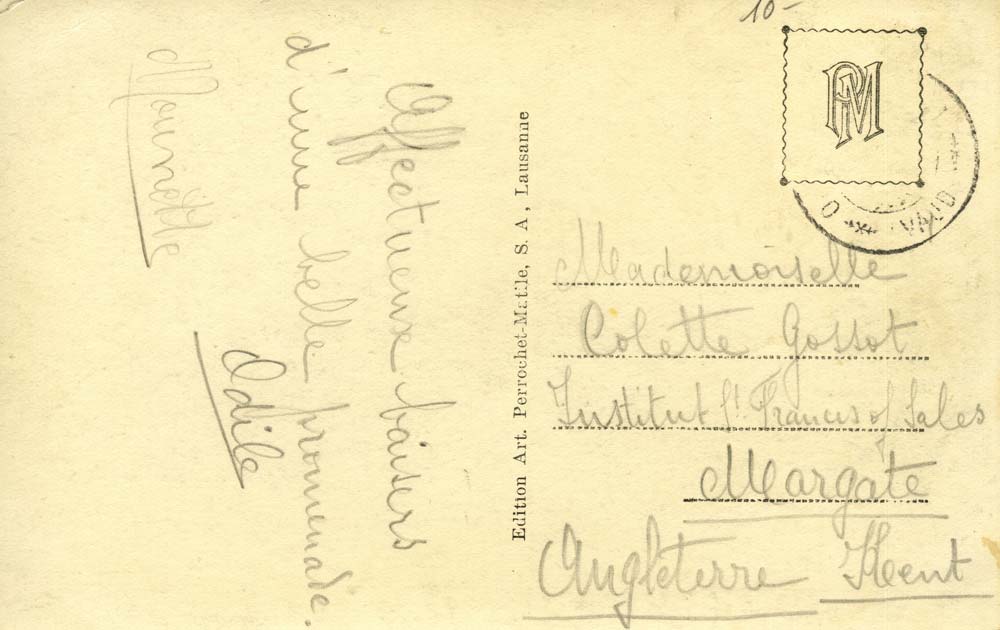 Affectueux baisers
d'une belle promenade.
Odile
Edition Art. Perrochet-Matile, S. A, Lausanne
10-
PM
VAUD
Mademoiselle
Colette Gossot
Institut St Francis of Sales
Margate
Angleterre Kent